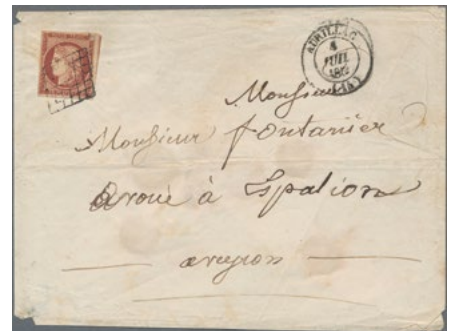 AURILLAC
JUIL
Monsieur
Monsieur fontanier
avoué à Espalion
aveyron